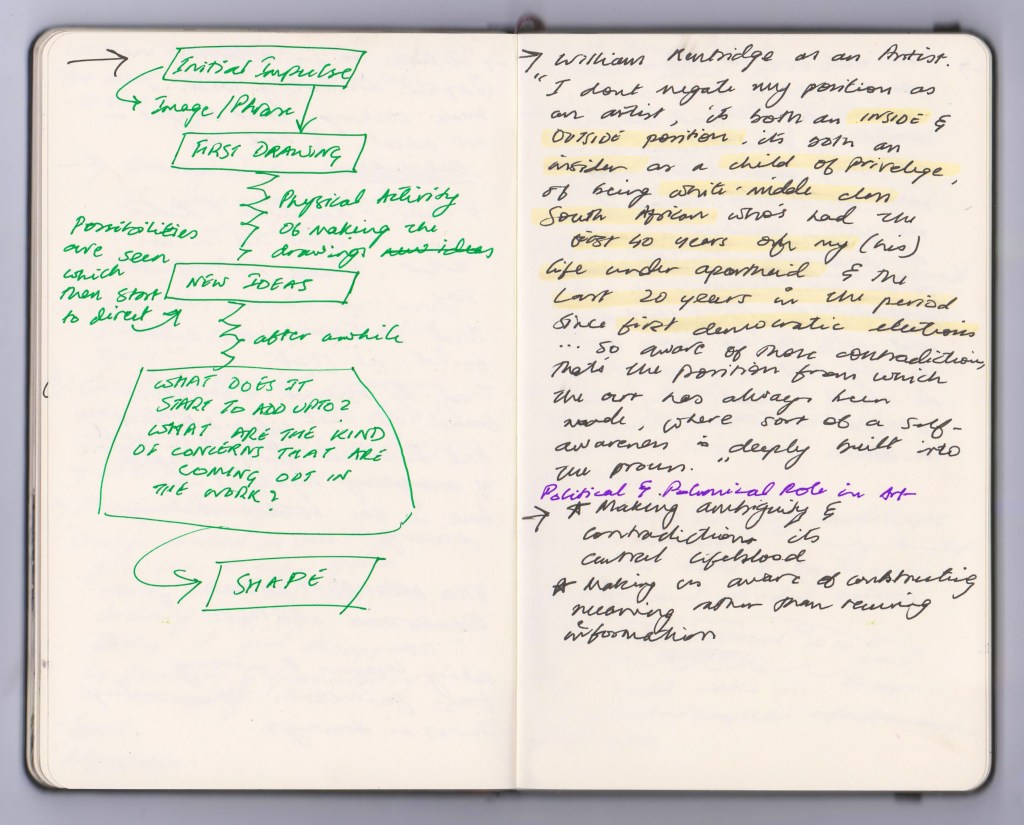 Initial Impulse
Image/Phrase
FIRST DRAWING
Physical Activity
Of making the
drawings new ideas
Possibilities
are seen
which
then start
to direct
NEW IDEAS
after awhile
WHAT DOES IT
START TO ADD UPTO?
WHAT ARE THE KIND
OF CONCERNS THAT ARE
COMING OUT IN
THE WORK?
SHAPE
William Kentridge as an Artist.
"I dont negate my position as
an artist, its both an INSIDE &
OUTSIDE position, its both an
insider as a child of privelege,
of being white middle class
South African who's had the
first 40 years of my (his)
life under apartheid & the
last 20 years in the period
since first democratic elections
... so aware of those contradictions,
thats the position from which
the art has always been
made, where sort of a self-
awareness is deeply built into
the process."
Political & Polemical Role in Art
* Making ambiguity &
contradictions its
central lifeblood
* Making us aware of constructing
meaning rather than receiving
information